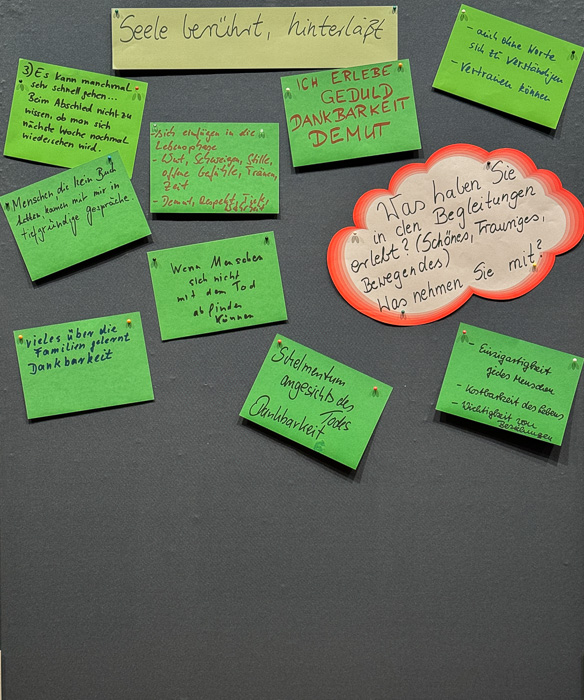 Seele berührt, hinterläßt
3) Es kann manchmal
sehr schnell gehen...
Beim Abschied nicht zu
wissen, ob man sich
nächste Woche nochmal
wiedersehen wird.
- sich einfügen in die
Lebensphase
- Wut, Schweigen, Stille,
offne Gefühle, Tränen,
Zeit
- Demut, Respekt, Tiefe,
ICH ERLEBE
GEDULD
DANKBARKEIT
DEMUT
- auch ohne Worte
sich zu verständigen
- Vertrauen können
Menschen die kein Buch
hatten kamen mit mir in
tiefgründige Gespräche.
Wenn Menschen
sich nicht
mit dem Tod
abfinden
können
Was haben Sie
in den Begleitungen
erlebt? (Schönes, Trauriges,
Bewegendes)
Was nehmen Sie mit?
vieles über die
Familien gelernt
Dankbarkeit
angesichts des
Todes
Dankbarkeit
- Einzigartigkeit
jedes Menschen
- Kostbarkeit des Lebens
- Wichtigkeit von
Beziehungen